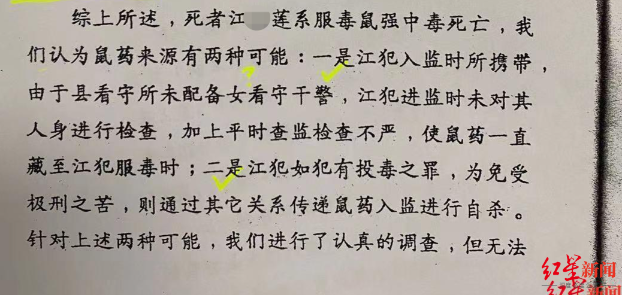 综上所述，死者江莲系服毒鼠强中毒死亡，我
们认为鼠药来源有两种可能：一是江犯入监时所携带，
由于县看守所未配备女看守干警，江犯进监时未对其
人身进行检查，加上平时查监检查不严，使鼠药一直
藏至江犯服毒时；二是江犯如犯有投毒之罪，为免受
极刑之苦，则通过其它关系传递鼠药入监进行自杀。
针对上述两种可能，我们进行了认真的调查，但无法
红星新闻
红星新闻